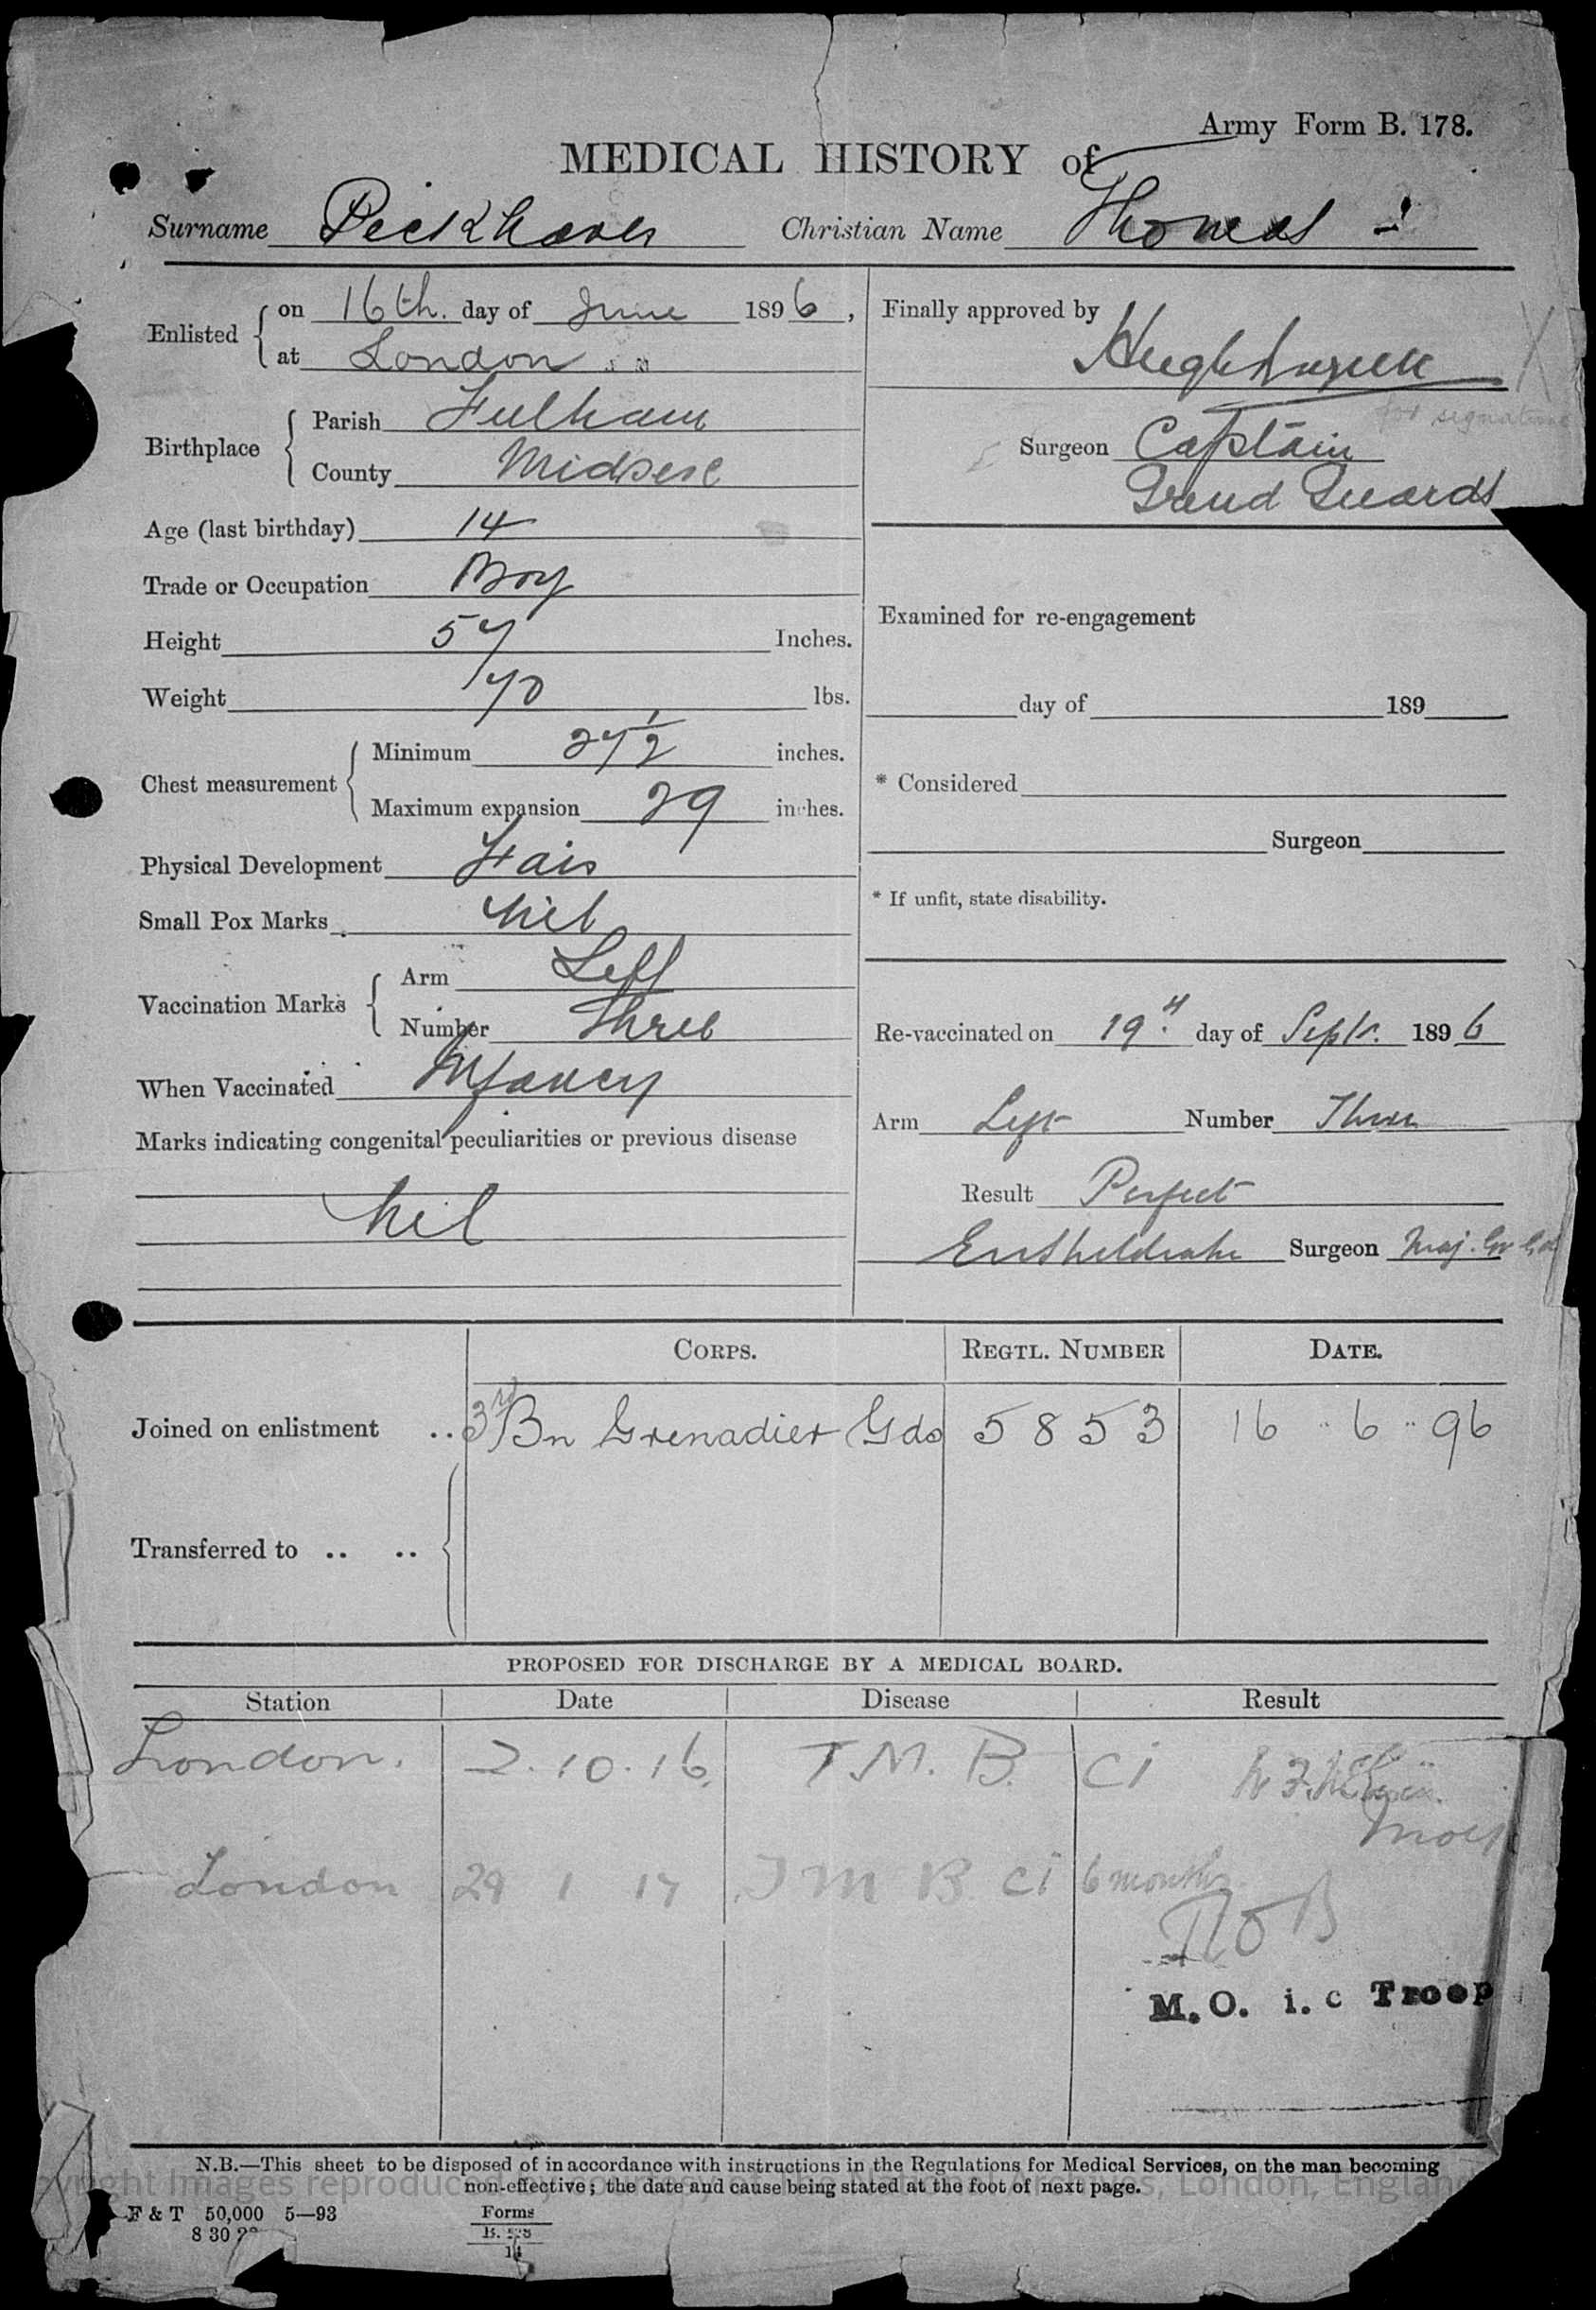 Army Form B. 178.
MEDICAL HISTORY of
Surname Peckhaver Christian Name Thomas
Enlisted on 16th. day of June 1896,
at London
Birthplace Parish Fulham
County Midsesc
Age (last birthday) 14
Trade or Occupation Boy
Height 57 Inches.
Weight 70 lbs.
Chest measurement Minimum 27 1/2 inches.
Maximum expansion 29 inches.
Physical Development Fair
Small Pox Marks Nil
Vaccination Marks Arm Left
Number Three
When Vaccinated Infancy
Marks indicating congenital peculiarities or previous disease
Nil
Finally approved by
for signature
Surgeon Captain
Grend Guards
Examined for re-engagement
day of 189
* Considered
Surgeon
* If unfit, state disability.
Re-vaccinated on 19th day of Septr. 1896
Arm Left Number Three
Result Perfect
Surgeon Maj. Gr Gds
CORPS. REGTL. NUMBER DATE.
Joined on enlistment .. 3rd Bn Grenadier Gds 5853 16 .. 6 .. 96
Transferred to .. ..
PROPOSED FOR DISCHARGE BY A MEDICAL BOARD.
Station Date Disease Result
London. 2.10.16. T.M.B. Ci
London 29 1 17 T M B Ci 6 months
M.O. i. c Troop
N.B.—This sheet to be disposed of in accordance with instructions in the Regulations for Medical Services, on the man becoming
non-effective; the date and cause being stated at the foot of next page.
yright Images reproduced by courtesy of The National Archives, London, England
F & T 50,000 5—93
8 30 22
Forms
B. 178
14